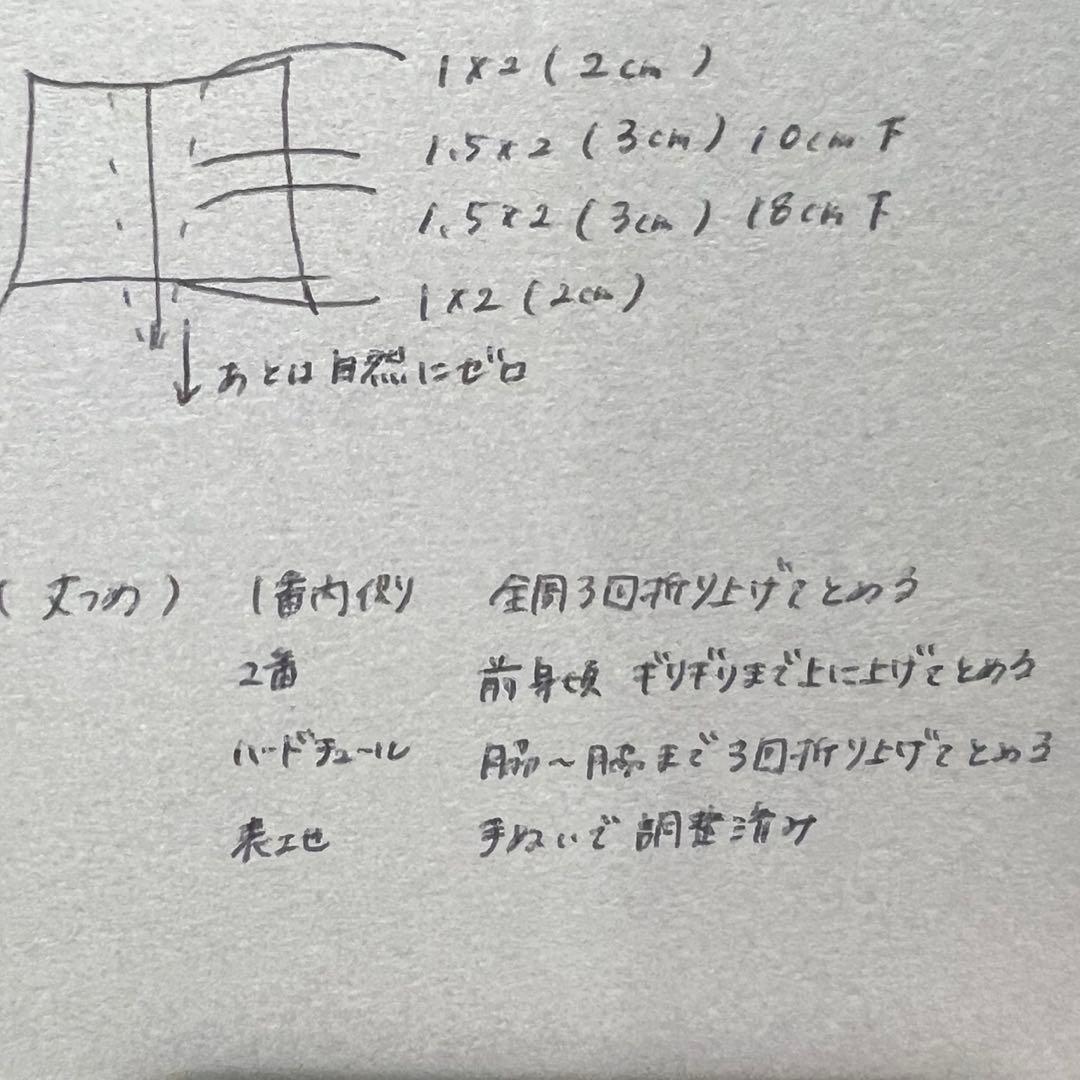 1×2(2cm)
1.5×2(3cm)10cm下
1.5×2(3cm)18cm下
1×2(2cm)
あとは自然にゼロ
(丈つめ) 1番内側 全周3回折り上げてとめる
2番 前身頃 ギリギリまで上に上げてとめる
ハードチュール 脇〜脇まで3回折り上げてとめる
表地 手ぬいで調整済み